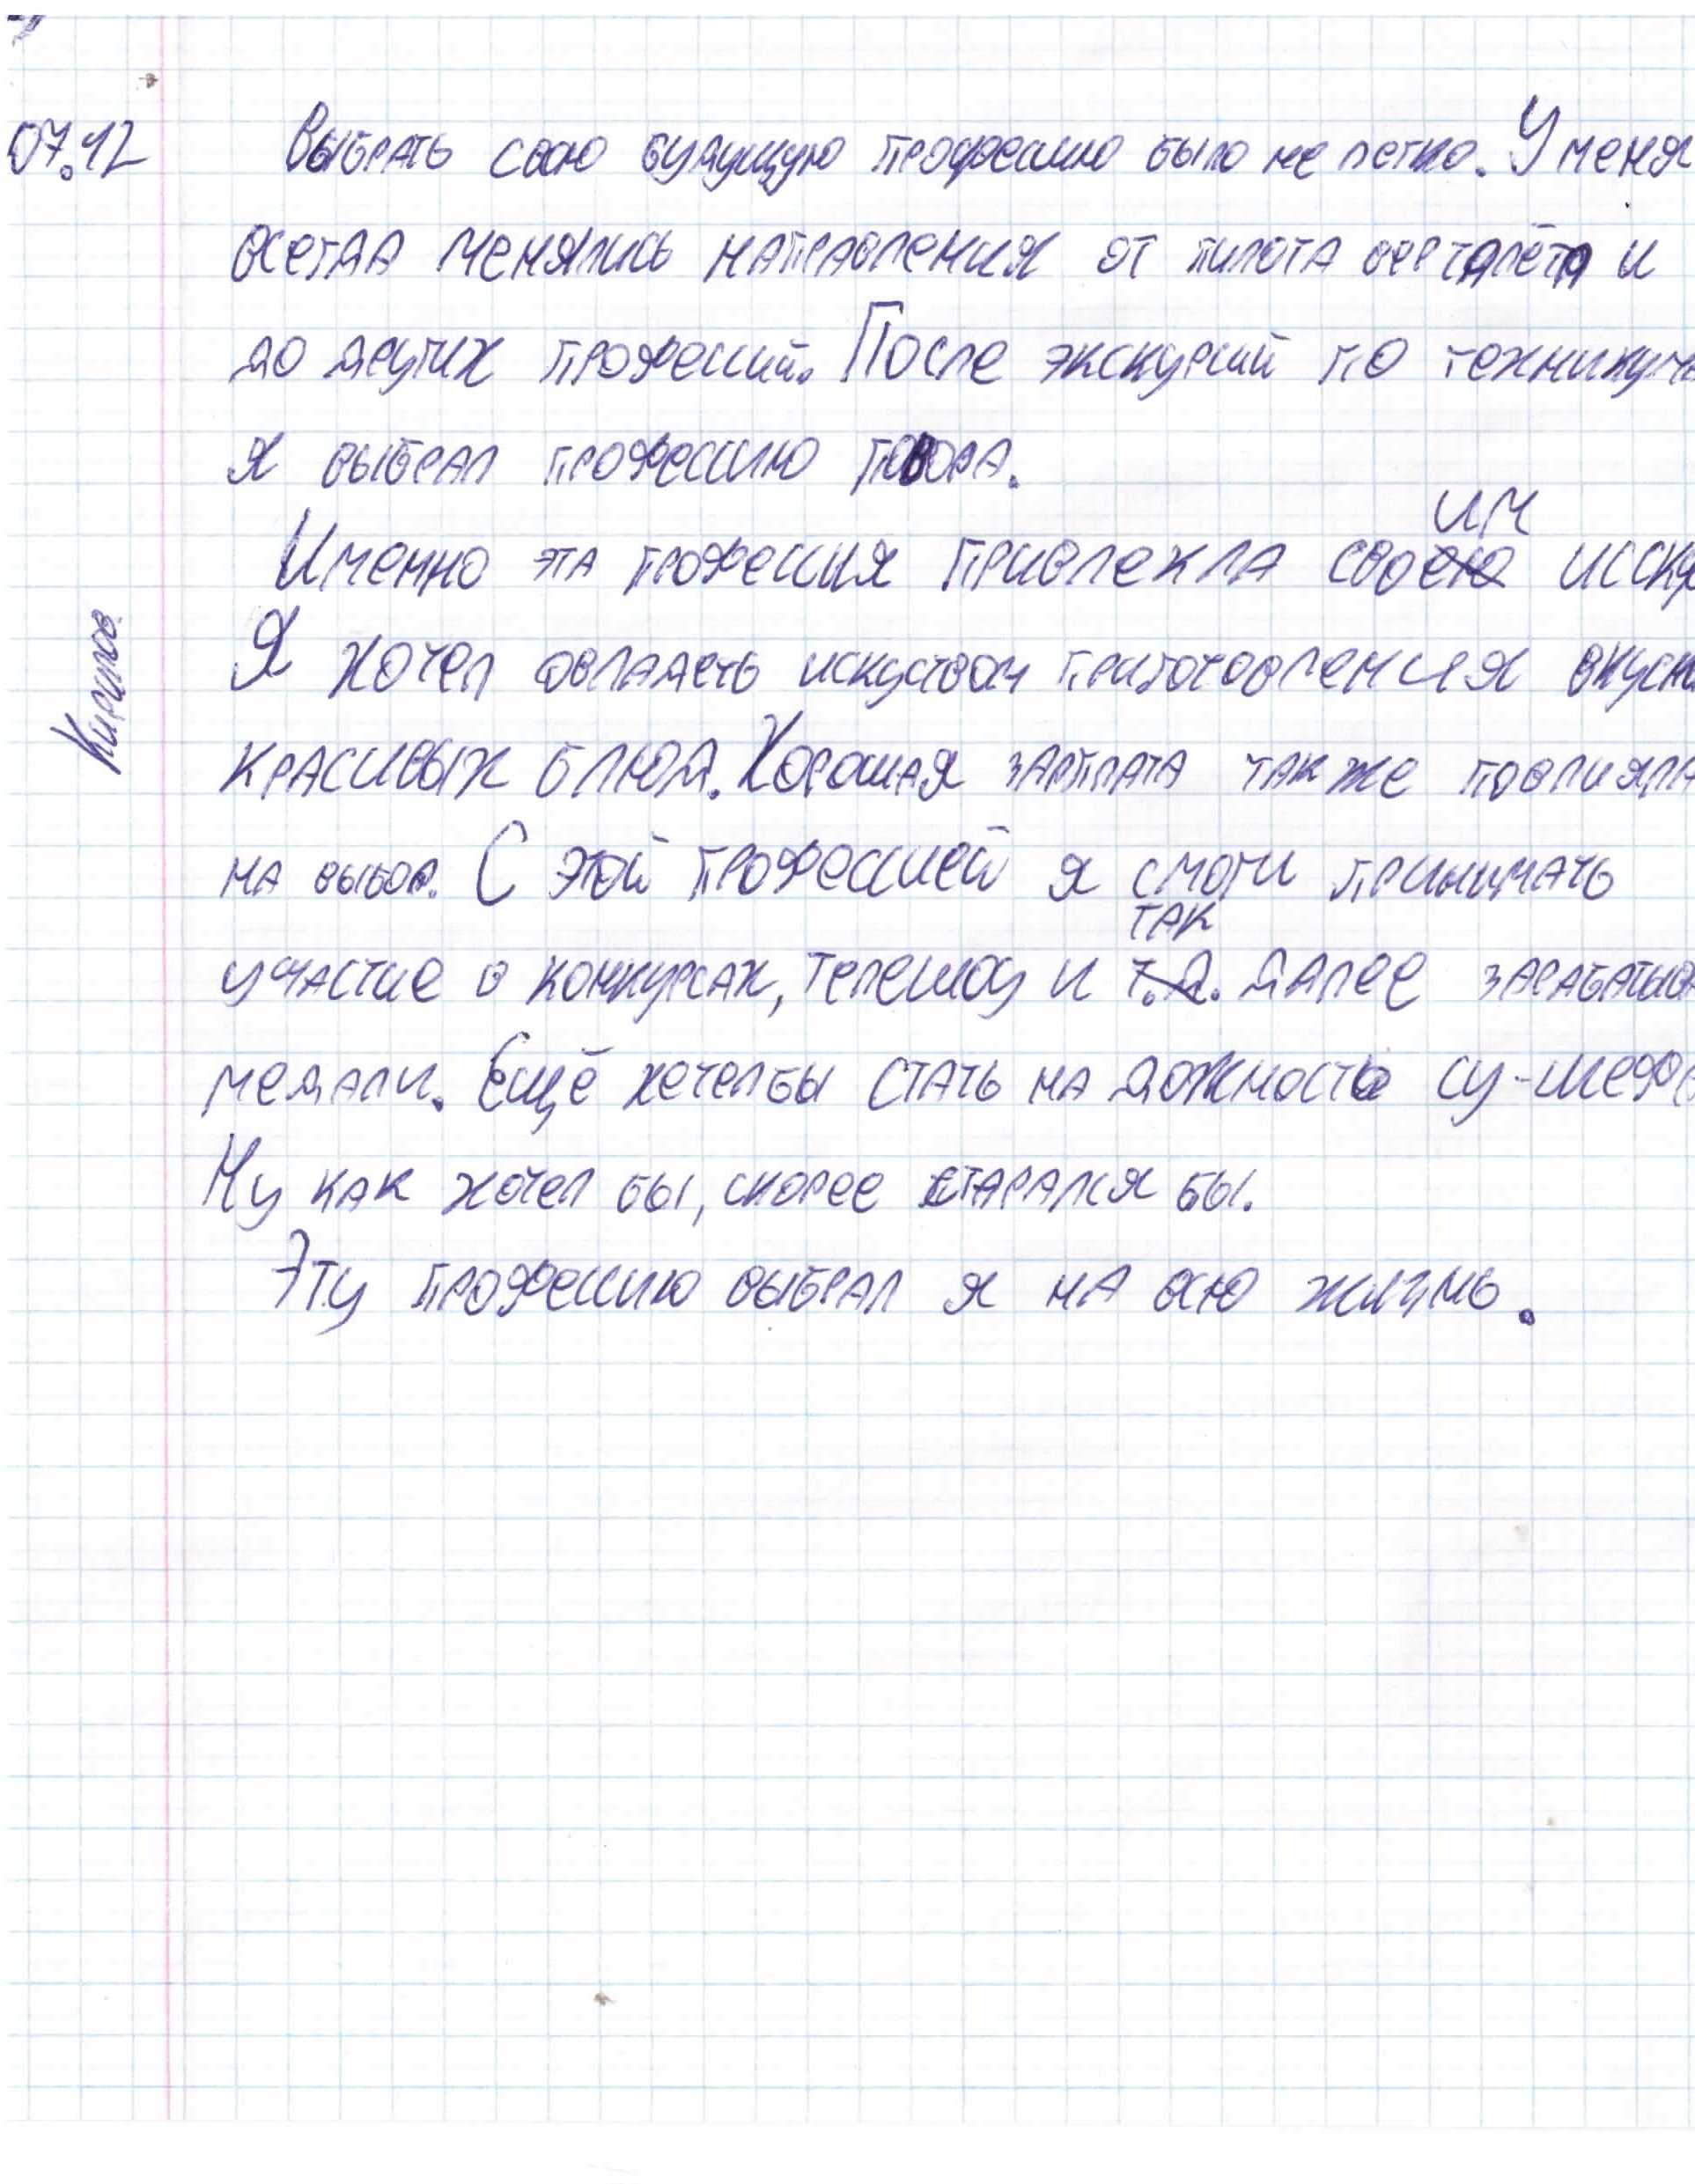 07.12 Выбрать свою будущую профессию было не легко. У меня
всегда менялись направления от пилота верталёта и
до других профессий. После экскурсий по технику
я выбрал профессию повора.
им
Именно эта профессия привлекла своею исск
Я хочел овладеть искуством приготовления вкусн
красивых блюд. Хорошая зарплата также повлияла
на выбор. С этой профессией я смогу принимать
так
участие в конкурсах, телешоу и т.д. далее зарабатыва
медали. Ещё хечел бы стать на дожность су-шеф
Ну как хочел бы, скорее старался бы.
Эту профессию выбрал я на всю жизнь.
Кирилов